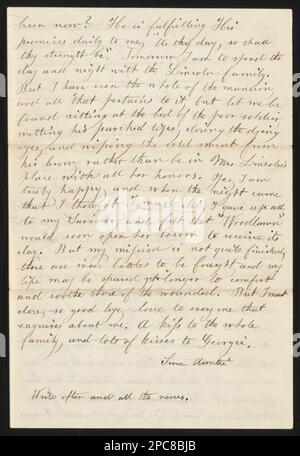 been now? He is fulfilling His
promises daily to me, As thy day, so shall
thy strength be". Tomorrow I am to spend the
day and night with the Lincoln family.
But I have seen the whole of the mansion
and all that pertains to it but let me be
found sitting at the bed of the poor soldier
wetting his parched lips, closing the dying
eyes, and wiping the cold sweat from
his brow, rather than be in Mrs Lincoln's
place with all her honors. Yes, I am
truly happy, and when the night came
that I thought I must die, I gave up all
to my Saviour and felt that "Woodlawn"
would soon open her bosom to receive its
clay. But my mission is not quite finished,
there are more battles to be fought and my
life may be spared yet longer to comfort
and soothe those of the wounded. But I must
close, so good bye, love to everyone that
enquires about me. A kiss to the whole
family, and lots of kisses to Georgie.
From Auntie
Write often and all the news.
alamy
Image ID: 2PC8BJB
www.alamy.com